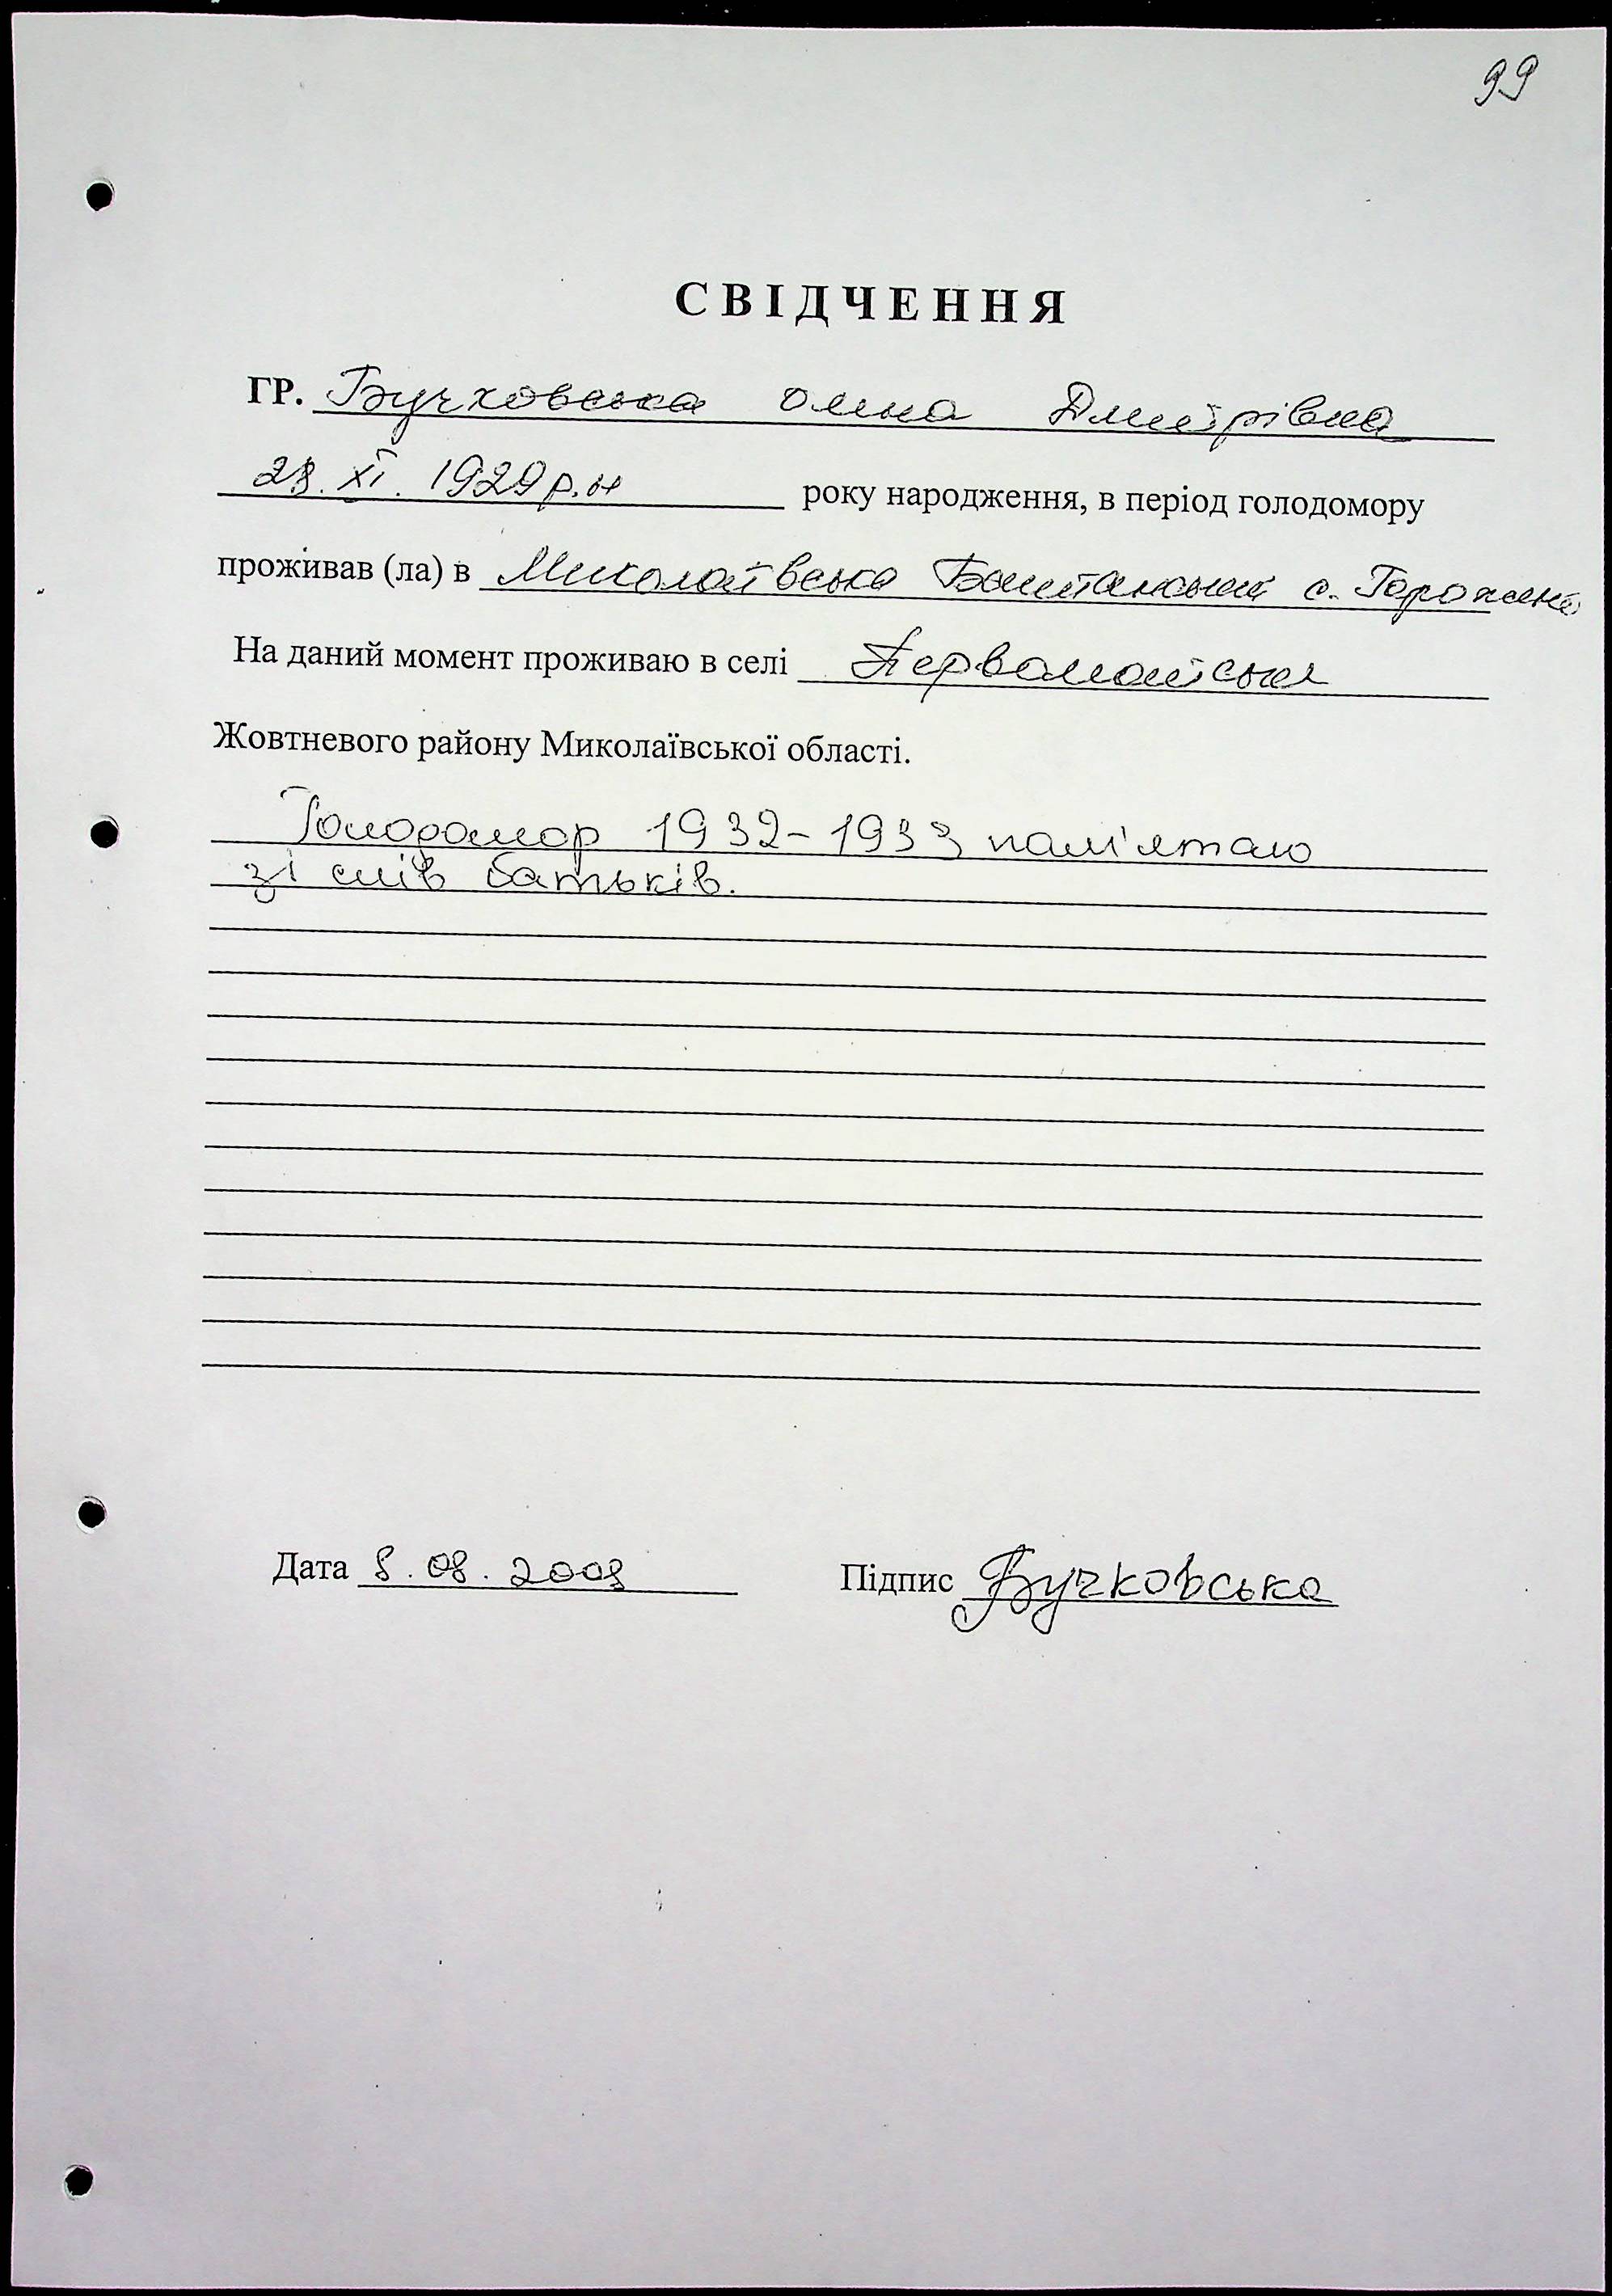 99
СВІДЧЕННЯ
ГР. Бучковська Олена Дмитрівна
28. XI. 1929 р.н року народження, в період голодомору
проживав (ла) в Миколаївська Баштанський с.
На даний момент проживаю в селі Первомайське
Жовтневого району Миколаївської області.
Голодомор 1932-1933 пам'ятаю
зі слів батьків.
Дата 8.08.2008 Підпис Бучковська